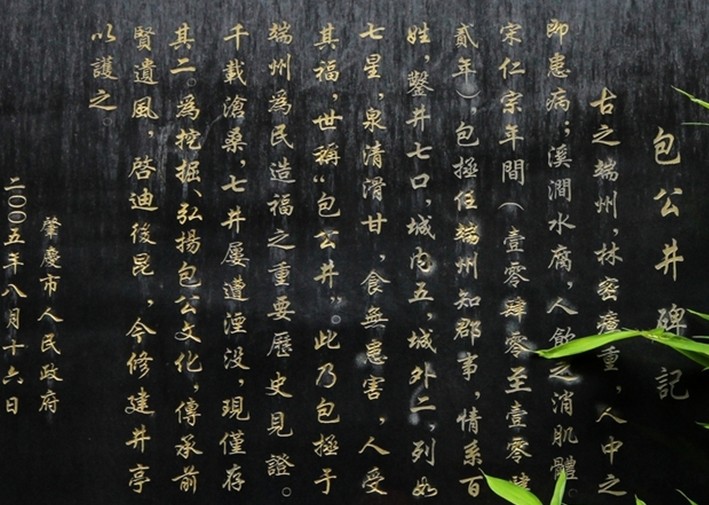 包公井碑記
古之端州，林密瘴重，人中之
即患病；溪澗水腐，人飲之消肌體。
宋仁宗年間（壹零肆零至壹零肆
貳年），包拯任端州知郡事，情系百
姓，鑿井七口，城内五，城外二，列如
七星，泉清滑甘，食無患害，人受
其福，世稱“包公井”。此乃包拯于
端州為民造福之重要歷史見證。
千載滄桑，七井屢遭湮没，現僅存
其二。為挖掘、弘揚包公文化，傳承前
賢遺風，啓迪後昆，今修建井亭
以護之。
肇慶市人民政府
二00五年八月十六日